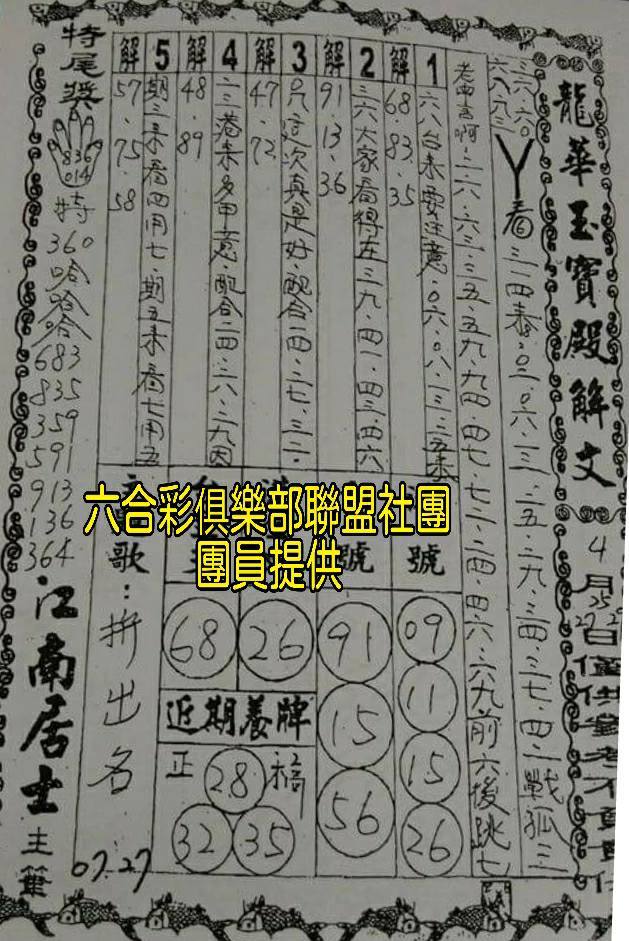 龍華玉寶殿解文
4月25 27 29日僅供參考不負責任
三六.六○
六八.九三
丫看三一四泰.○三.○六.三一.二五.二九.三四.三七.四一戰孤三
老曲言啊.二六.六三.三五.五九.九四.四七.七二.二四.四六.六九前六後跳七
1
六八台來要注意.○六.○八.一三.三五來
解
68.83.35
2
三六大家看得左三九.四一.四三.四六
解
91.13.36
3
只這次真是好.配合一四.二七.三二
解
47.72
4
二三巷來多甲意.配合二四.二六.二九因
解
48.89
5
期三來看四用七.期五來看七用五
解
57.75.58
特尾獎
836
014
特
360
哈
哈
哈
683
835
359
591
913
136
364
江南居士主筆
號
09
11
15
26
號
91
15
56
26
68
近期養牌
正
福
28
32
35
歌：拚出名
07.27
六合彩俱樂部聯盟社團
團員提供